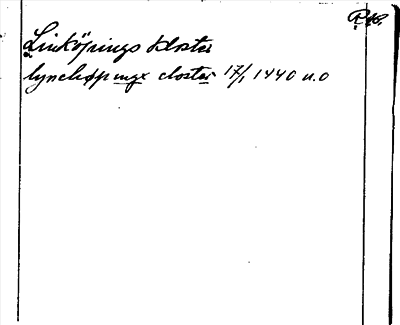 Linköpings kloster
lynchøpungx closter 17/1 1440 u.o